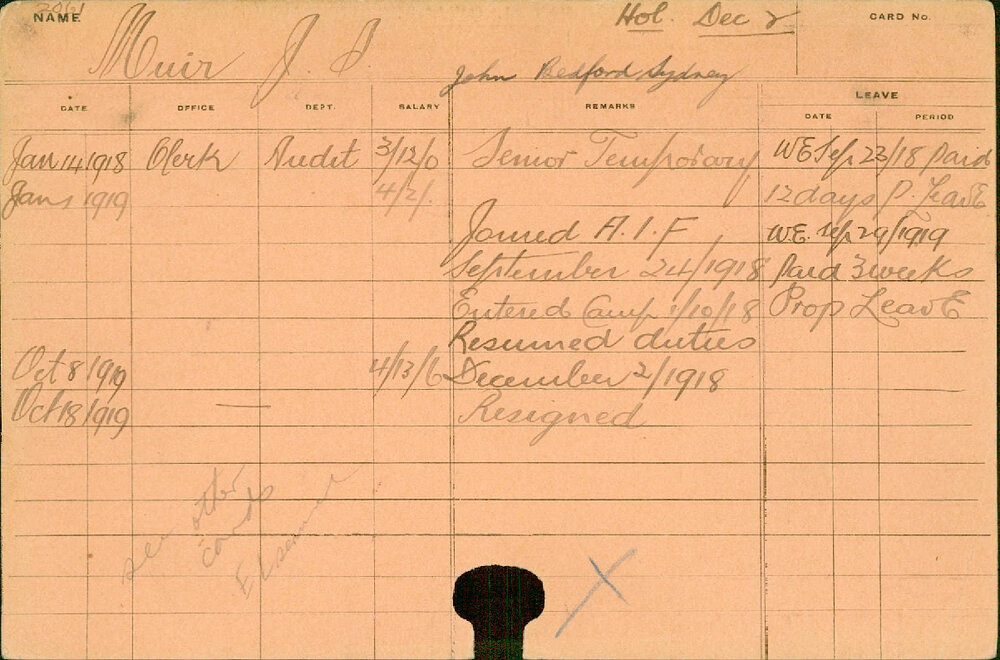 NAME
Hol. Dec 2
CARD No.
Muir J.
John Bedford Sydney
DATE OFFICE DEPT. SALARY REMARKS LEAVE
DATE PERIOD
Jan 14 1918 Clerk Audit 3/12/0 Senior Temporary WE Sep 23/18 Paid
Jan 1 1919 4/2/. 12 days P. Leave
Joined A.I.F WE. Sep 29/1919
September 24/1918 Paid 3 weeks
Entered Camp 1/10/18 Prop Leave
Resumed duties
Oct 8 1919 4/13/6 December 2/1918
Oct 18/1919 — Resigned
see other
cards